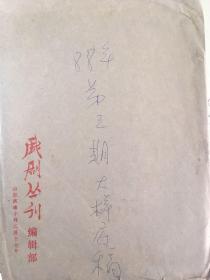 88年
第三期大样底稿
戏剧丛刊
编辑部